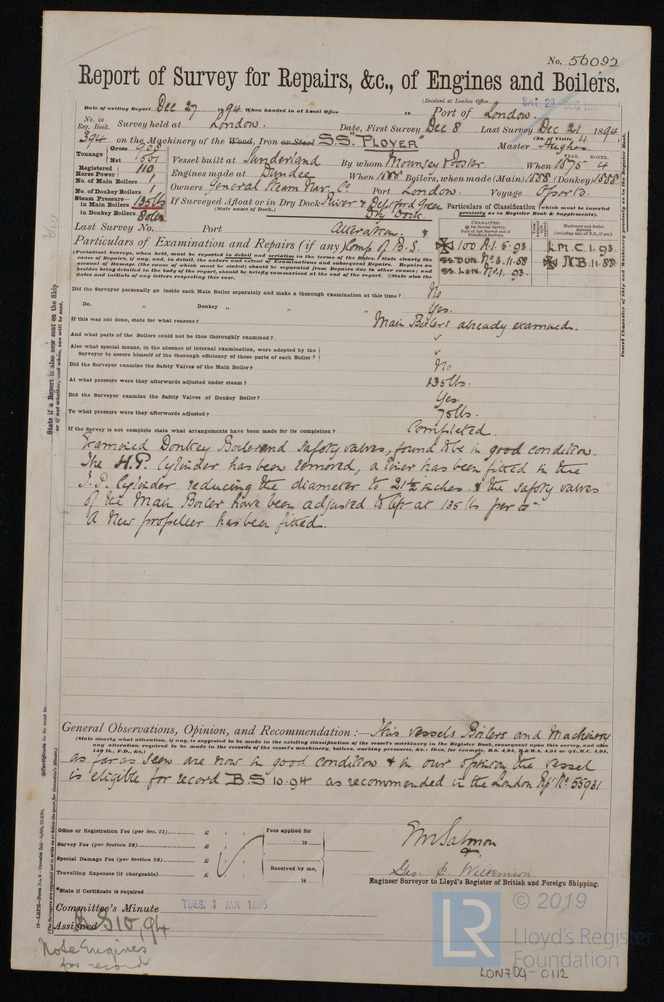 No. 56092
Report of Survey for Repairs, &c., of Engines and Boilers.
(Received at London Office
Date of writing Report Dec 27 1894 When handed in at Local Office 18 Port of London.
No. in Reg. Book. Survey held at London. Date, First Survey Dec 8 Last Survey Dec 21 1894
(No. of Visits 4
394 on the Machinery of the Wood, Iron or Steel S.S. "PLOVER" Master Hughes
Tonnage Gross Net Vessel built at Sunderland By whom Mounsey & Foster When 1875 4
YEAR. MONTH.
Registered Horse Power 110 Engines made at Dundee When 1888 Boilers, when made (Main) 1888 (Donkey) 1888
No. of Main Boilers 1
No. of Donkey Boilers 1 Owners General Steam Nav. Co. Port London. Voyage Oporto.
Steam Pressure in Main Boilers 135 lbs If Surveyed Afloat or in Dry Dock River & Deptford Green Dry Dock
in Donkey Boilers
(State name of Dock.)
Particulars of Classification (which must be inserted precisely as in Register Book & Supplements).
Last Survey No. Port
Particulars of Examination and Repairs (if any) Alterations & Comp. of B.S.
100 A.1. 5.93 L.M.C. 1.93
SS. DUN. No. 3. 11.88 N.B. 11.88
SS. LON. No. 1. 93
Did the Surveyor personally go inside each Main Boiler separately and make a thorough examination at this time? No
Do. " Donkey " " Yes.
If this was not done, state for what reasons? Main Boilers already examined.
And what parts of the Boilers could not be thus thoroughly examined?
Also what special means, in the absence of internal examination, were adopted by the Surveyor to assure himself of the thorough efficiency of those parts of each Boiler?
Did the Surveyor examine the Safety Valves of the Main Boiler? No
At what pressure were they afterwards adjusted under steam? 135 lbs.
Did the Surveyor examine the Safety Valves of Donkey Boiler? Yes.
To what pressure were they afterwards adjusted? 75 lbs.
If the Survey is not complete state what arrangements have been made for its completion? Completed.
Examined Donkey Boiler and safety valves, found to be in good condition.
The H.P. Cylinder has been removed, a liner has been fitted in the
I.P. Cylinder reducing the diameter to 21½ inches & the safety valves
of the Main Boiler have been adjusted to lift at 135 lbs per □"
A New propeller has been fitted.
General Observations, Opinion, and Recommendation:— This vessels Boilers and Machinery
as far as seen are now in good condition & in our opinion the vessel
is eligible for record B.S 10.94 as recommended in the London Rpt No. 55931
Office or Registration Fee (per Sec. 27) £
Survey Fee (per Section 28) £
Special Damage Fee (per Section 28) £
Travelling Expenses (if chargeable) £
Fees applied for
18
Received by me,
18
*State if Certificate is required
E W Salmon
&
Geo. E. Wilkinson
Engineer Surveyor to Lloyd's Register of British and Foreign Shipping.
Committee's Minute TUES. 1 JAN 1895
Assigned B S 10,94
Note Engines
for record
LR
© 2019
Lloyd's Register
Foundation
LON704-0112